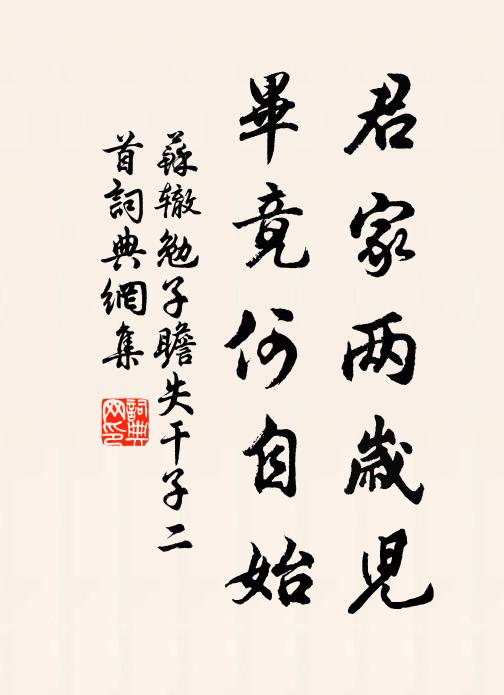 君家两歲児
畢竟何自始
蘇辙勉子瞻失干子二
首詞典網集
詞典
网印